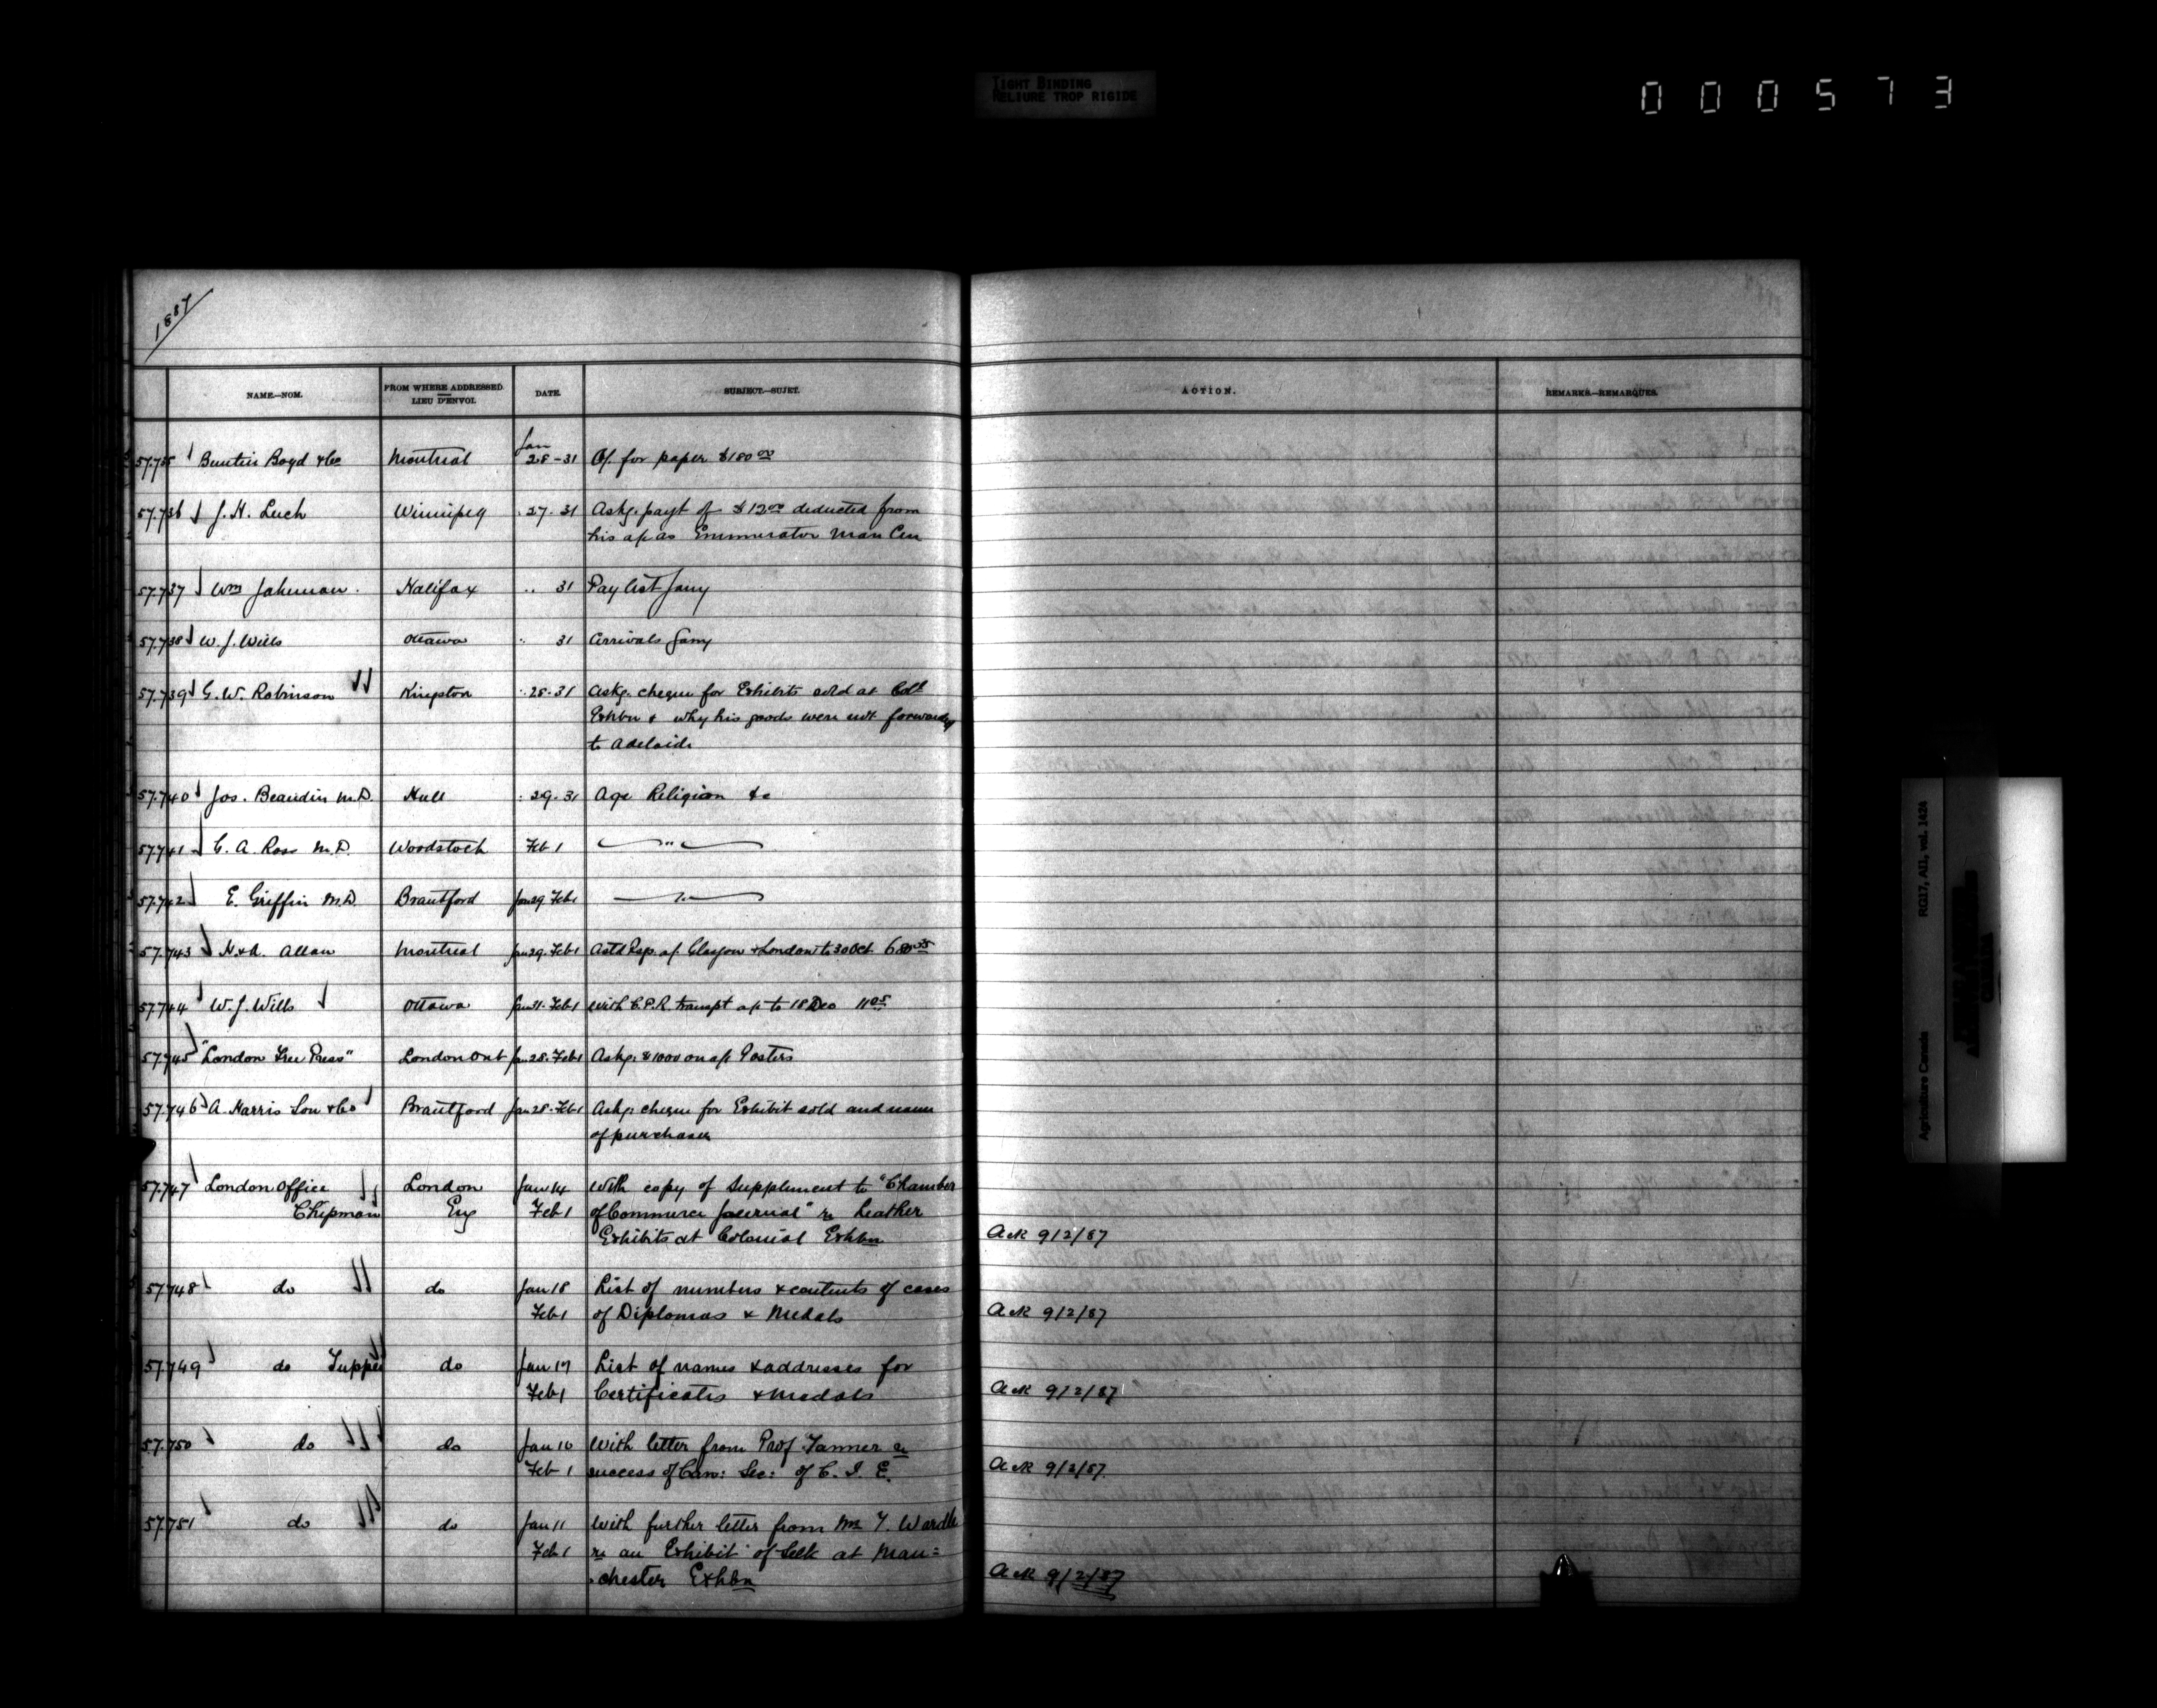 TIGHT BINDING
RELIURE TROP RIGIDE
000573
1887
NAME.—NOM.
FROM WHERE ADDRESSED.
LIEU D'ENVOI.
DATE.
SUBJECT.—SUJET.
ACTION.
REMARKS.—REMARQUES.
57.735 Buntin Boyd & Co Montreal Jan 28-31 a/. for paper $180 00
57.736 J. H. Luch Winnipeg 27. 31 Askg. payt of $12 00 deducted from
his a/c as Enumerator Man Cen
57.737 Wm Jahuman. Halifax .. 31 Pay list Jany
57.738 W. J. Wills Ottawa .. 31 Arrivals Jany
57.739 G. W. Robinson Kingston .. 28.31 Askg. cheque for Exhibits sold at Coll
Exhbn & why his goods were not forwarded
to Adelaide
57.740 Jos. Beaudin M.D. Hull : 29.31 Age Religion &c
57.741 C. A. Ross M.D. Woodstock Feb 1 "
57.742 E. Griffin M.D. Brantford Jan 29. Feb 1 "
57.743 H. & A. Allan Montreal Jan 29. Feb 1 Astd Psgs. a/. Glasgow & London to 30 Oct
57.744 W. J. Wills Ottawa Jan 31. Feb 1 With C.P.R. transpt a/c to 18 Dec 11 05
57.745 "London Free Press" London Ont Jan 28. Feb 1 Askg. $1000 on a/c Posters
57.746 A. Harris Son & Co Brantford Jan 28. Feb 1 Askg. cheque for Exhibit sold and name
of purchaser
57.747 London Office London Jan 14 With copy of Supplement to "Chamber
Chipman Eng Feb 1 of Commerce Journal" re Leather
Exhibits at Colonial Exhbn Ack 9/2/87
57.748 do do Jan 18 List of numbers & contents of cases
Feb 1 of Diplomas & Medals Ack 9/2/87
57.749 do Tupper do Jan 19 List of names & addresses for
Feb 1 Certificates & Medals Ack 9/2/87
57.750 do do Jan 10 With letter from Prof Tanner re
Feb 1 success of Can: Sec: of C. I. E. Ack 9/2/87
57.751 do do Jan 11 With further letter from Mr T. Wardle
Feb 1 re an Exhibit of Silk at Man=
chester Exhbn Ack 9/2/87
Agriculture Canada RG17, AI1, vol. 1424